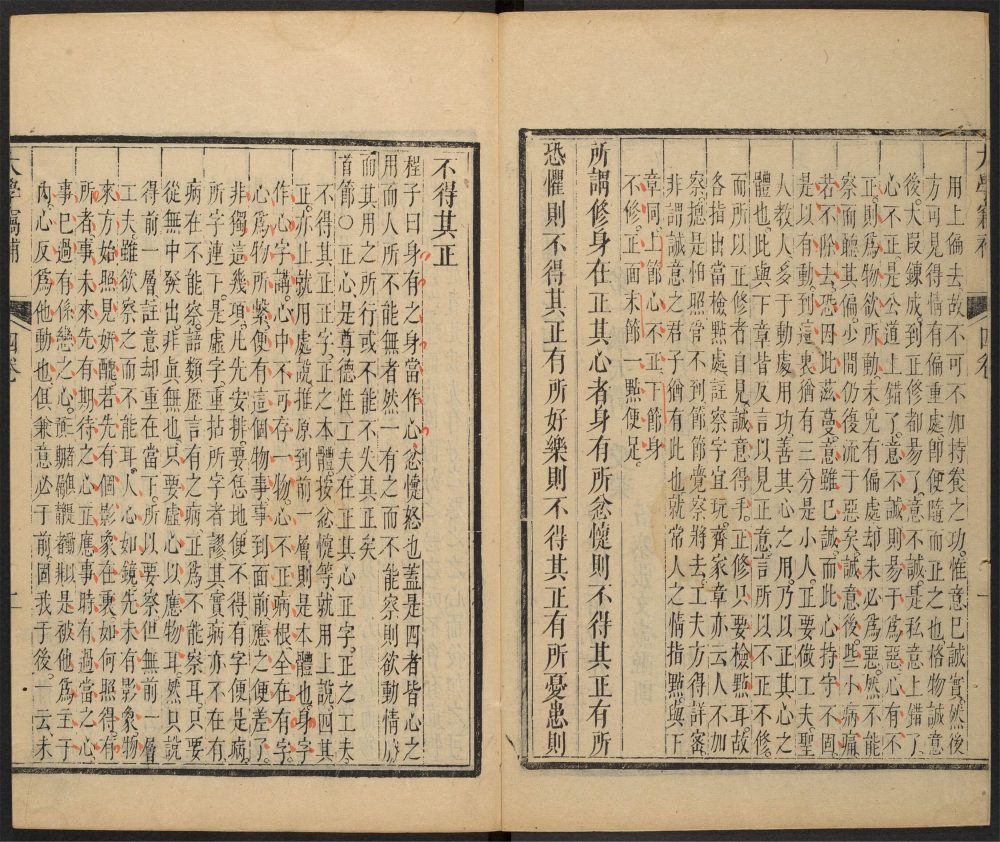 用上偏去故不可不加持養之功惟意已誠實然後
方可見得情有偏重處即便隨而正之也格物誠意
後大叚鍊成到正修都易了意不誠是私意上錯了
心不正是公道上錯了意不誠則易于為惡心有不
正則為物欲所動未免有偏處却未必為惡然不能
察而聽其偏少間仍復流于惡矣誠意後些小病痛
若不除去恐因此滋蔓意雖已誠而此心持守不固
是以有動到這裏猶有三分是小人正要做工夫聖
人教人多于動處用功善其心之用乃以正其心之
體也此與下章皆反言以見正意言所以不正不修
而所以正修者自見誠意得手正修只要檢點耳故
各指出當檢點處註察字宜玩齊家章亦云人不加
察摠是怕照管不到節節覺察將去工夫方得詳審
非謂誠意之君子猶有此也就常人之情指點與下
章同上節心不正下節身
不修正面末節一點便足
所謂修身在正其心者身有所忿懥則不得其正有所
恐懼則不得其正有所好樂則不得其正有所憂患則
不得其正
程子曰身有之身當作心忿懥怒也蓋是四者皆心之
用而人所不能無者然一有之而不能察則欲動情勝
而其用之所行或不能不失其正矣
首節〇正心是尊德性工夫在正其心正字正之工夫
不得其正正字正之本體按忿懥等就用上說四其
正亦止就用處說推原到前一層則是本體也身字
作心字講心中不可存一物心不正病根全在有字
心為物所繫便有這個物事事到面前應之便差了
非獨這幾項凡先安排要恁地便不得有字便是病
所字連下是虛字重拈所字者謬其實病亦不在有
病在不能察語類歷言有之病正為不能察耳只要
從無中發出非眞無也只要虛心以應物耳然只說
得前一層註意却重在當下所以要察但無前一層
工夫雖欲察之而不能耳人心如鏡先未有影象物
來方始照見妍醜若先有個影象在裏如何照得有
所者事未來先有期待之心正應事時有過當之心
事已過有係戀之心
内心反為他動也俱兼意必于前固我于後一云未